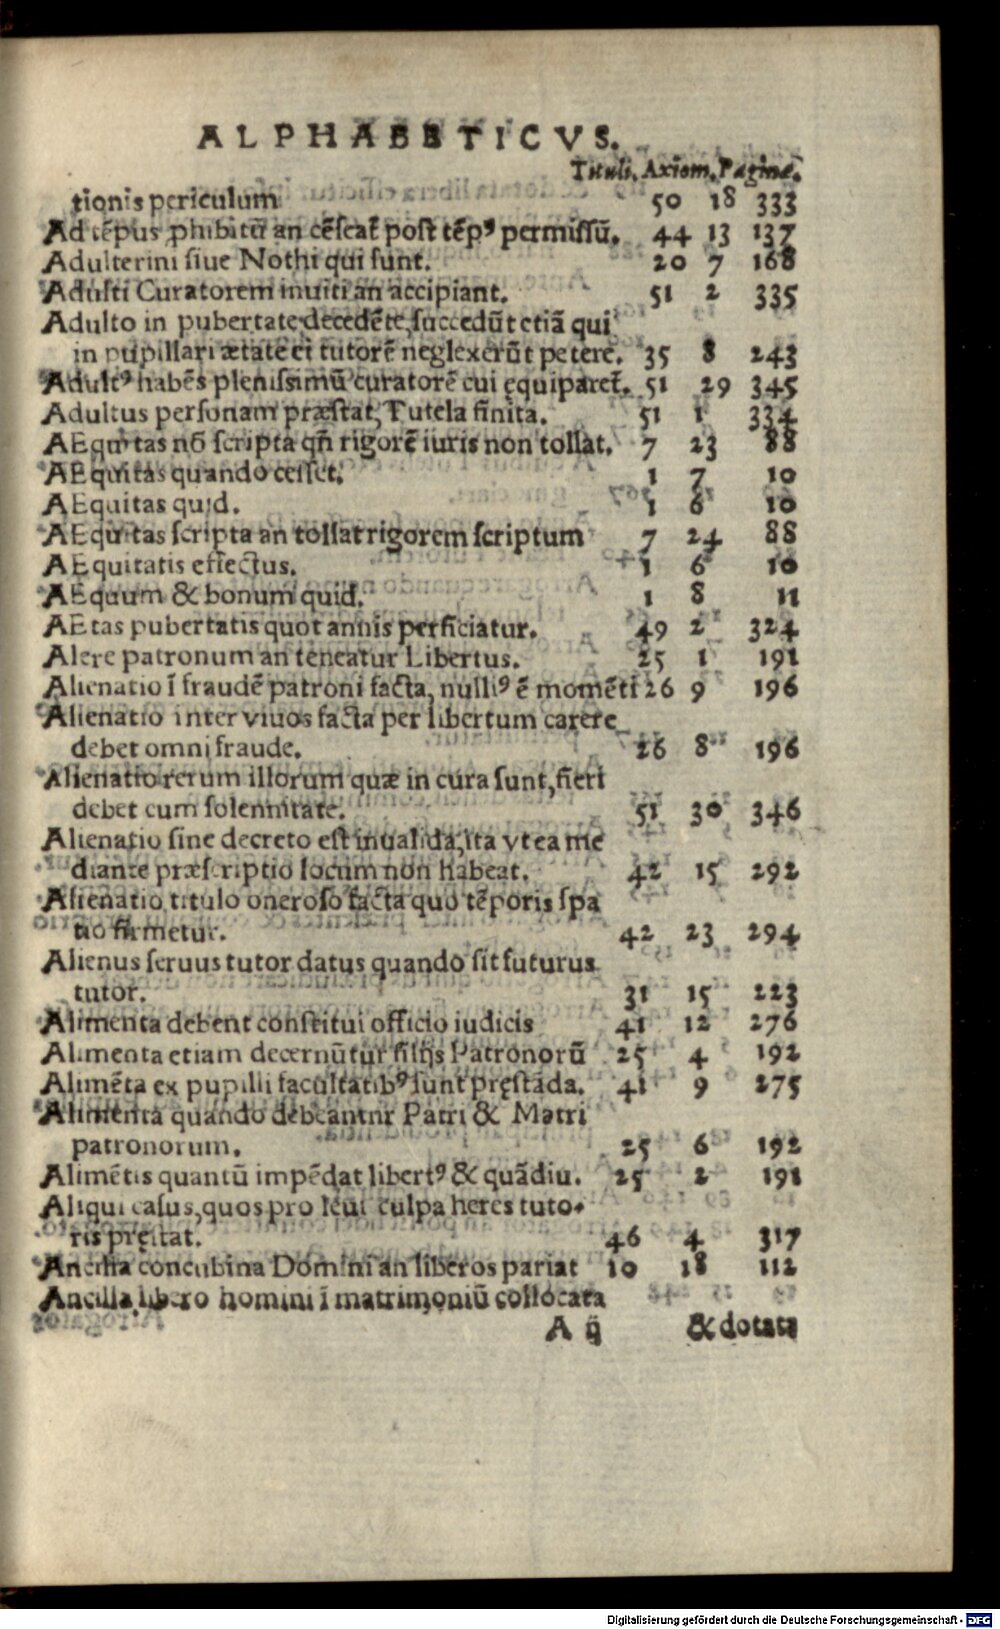 ALPHABETICVS.
Tituli. Axiom. Paginæ.
tionis periculum 50 18 333
Ad tẽpus ꝓhibitũ an cẽseat̃ post tẽpꝰ permissũ. 44 13 137
Adulterini siue Nothi qui sunt. 20 7 168
Adulti Curatorem inuiti an accipiant. 51 2 335
Adulto in pubertate decedẽte, succedũt etiã qui
in pupillari ætate ei tutorẽ neglexerũt petere. 35 8 243
Adultꝰ habẽs plenissimũ curatorẽ cui ęquiparet̃. 51 29 345
Adultus personam præstat, Tutela finita. 51 1 334
AEquitas nõ scripta qñ rigorẽ iuris non tollat. 7 23 88
AEquitas quando cesset. 1 7 10
AEquitas quid. 1 6 10
AEquitas scripta an tollat rigorem scriptum 7 24 88
AEquitatis effectus. 1 6 10
AEquum & bonum quid. 1 8 11
AEtas pubertatis quot annis perficiatur. 49 2 324
Alere patronum an teneatur Libertus. 25 1 191
Alienatio ĩ fraudẽ patroni facta, nulliꝰ ẽ momẽti 26 9 196
Alienatio inter viuos facta per libertum carere
debet omni fraude. 26 8 196
Alienatio rerum illorum quæ in cura sunt, fieri
debet cum solennitate. 51 30 346
Alienatio sine decreto est inualida, ita vt ea me
diante præscriptio locum non habeat. 42 15 292
Alienatio titulo oneroso facta quo tẽporis spa
tio firmetur. 42 23 294
Alienus seruus tutor datus quando sit futurus
tutor. 31 15 223
Alimenta debent constitui officio iudicis 41 12 276
Alimenta etiam decernũtur filijs Patronorũ 25 4 192
Alimẽta ex pupilli facultatibꝰ sunt pręstãda. 41 9 275
Alimenta quando debeantnr Patri & Matri
patronorum. 25 6 192
Alimẽtis quantũ impẽdat libertꝰ & quãdiu. 25 2 191
Aliqui casus, quos pro leui culpa heres tuto-
ris pręstat. 46 4 317
Ancilla concubina Domini an liberos pariat 10 18 112
Ancilla libero homini ĩ matrimoniũ collocata
A ij & dotata
Digitalisierung gefördert durch die Deutsche Forschungsgemeinschaft - DFG